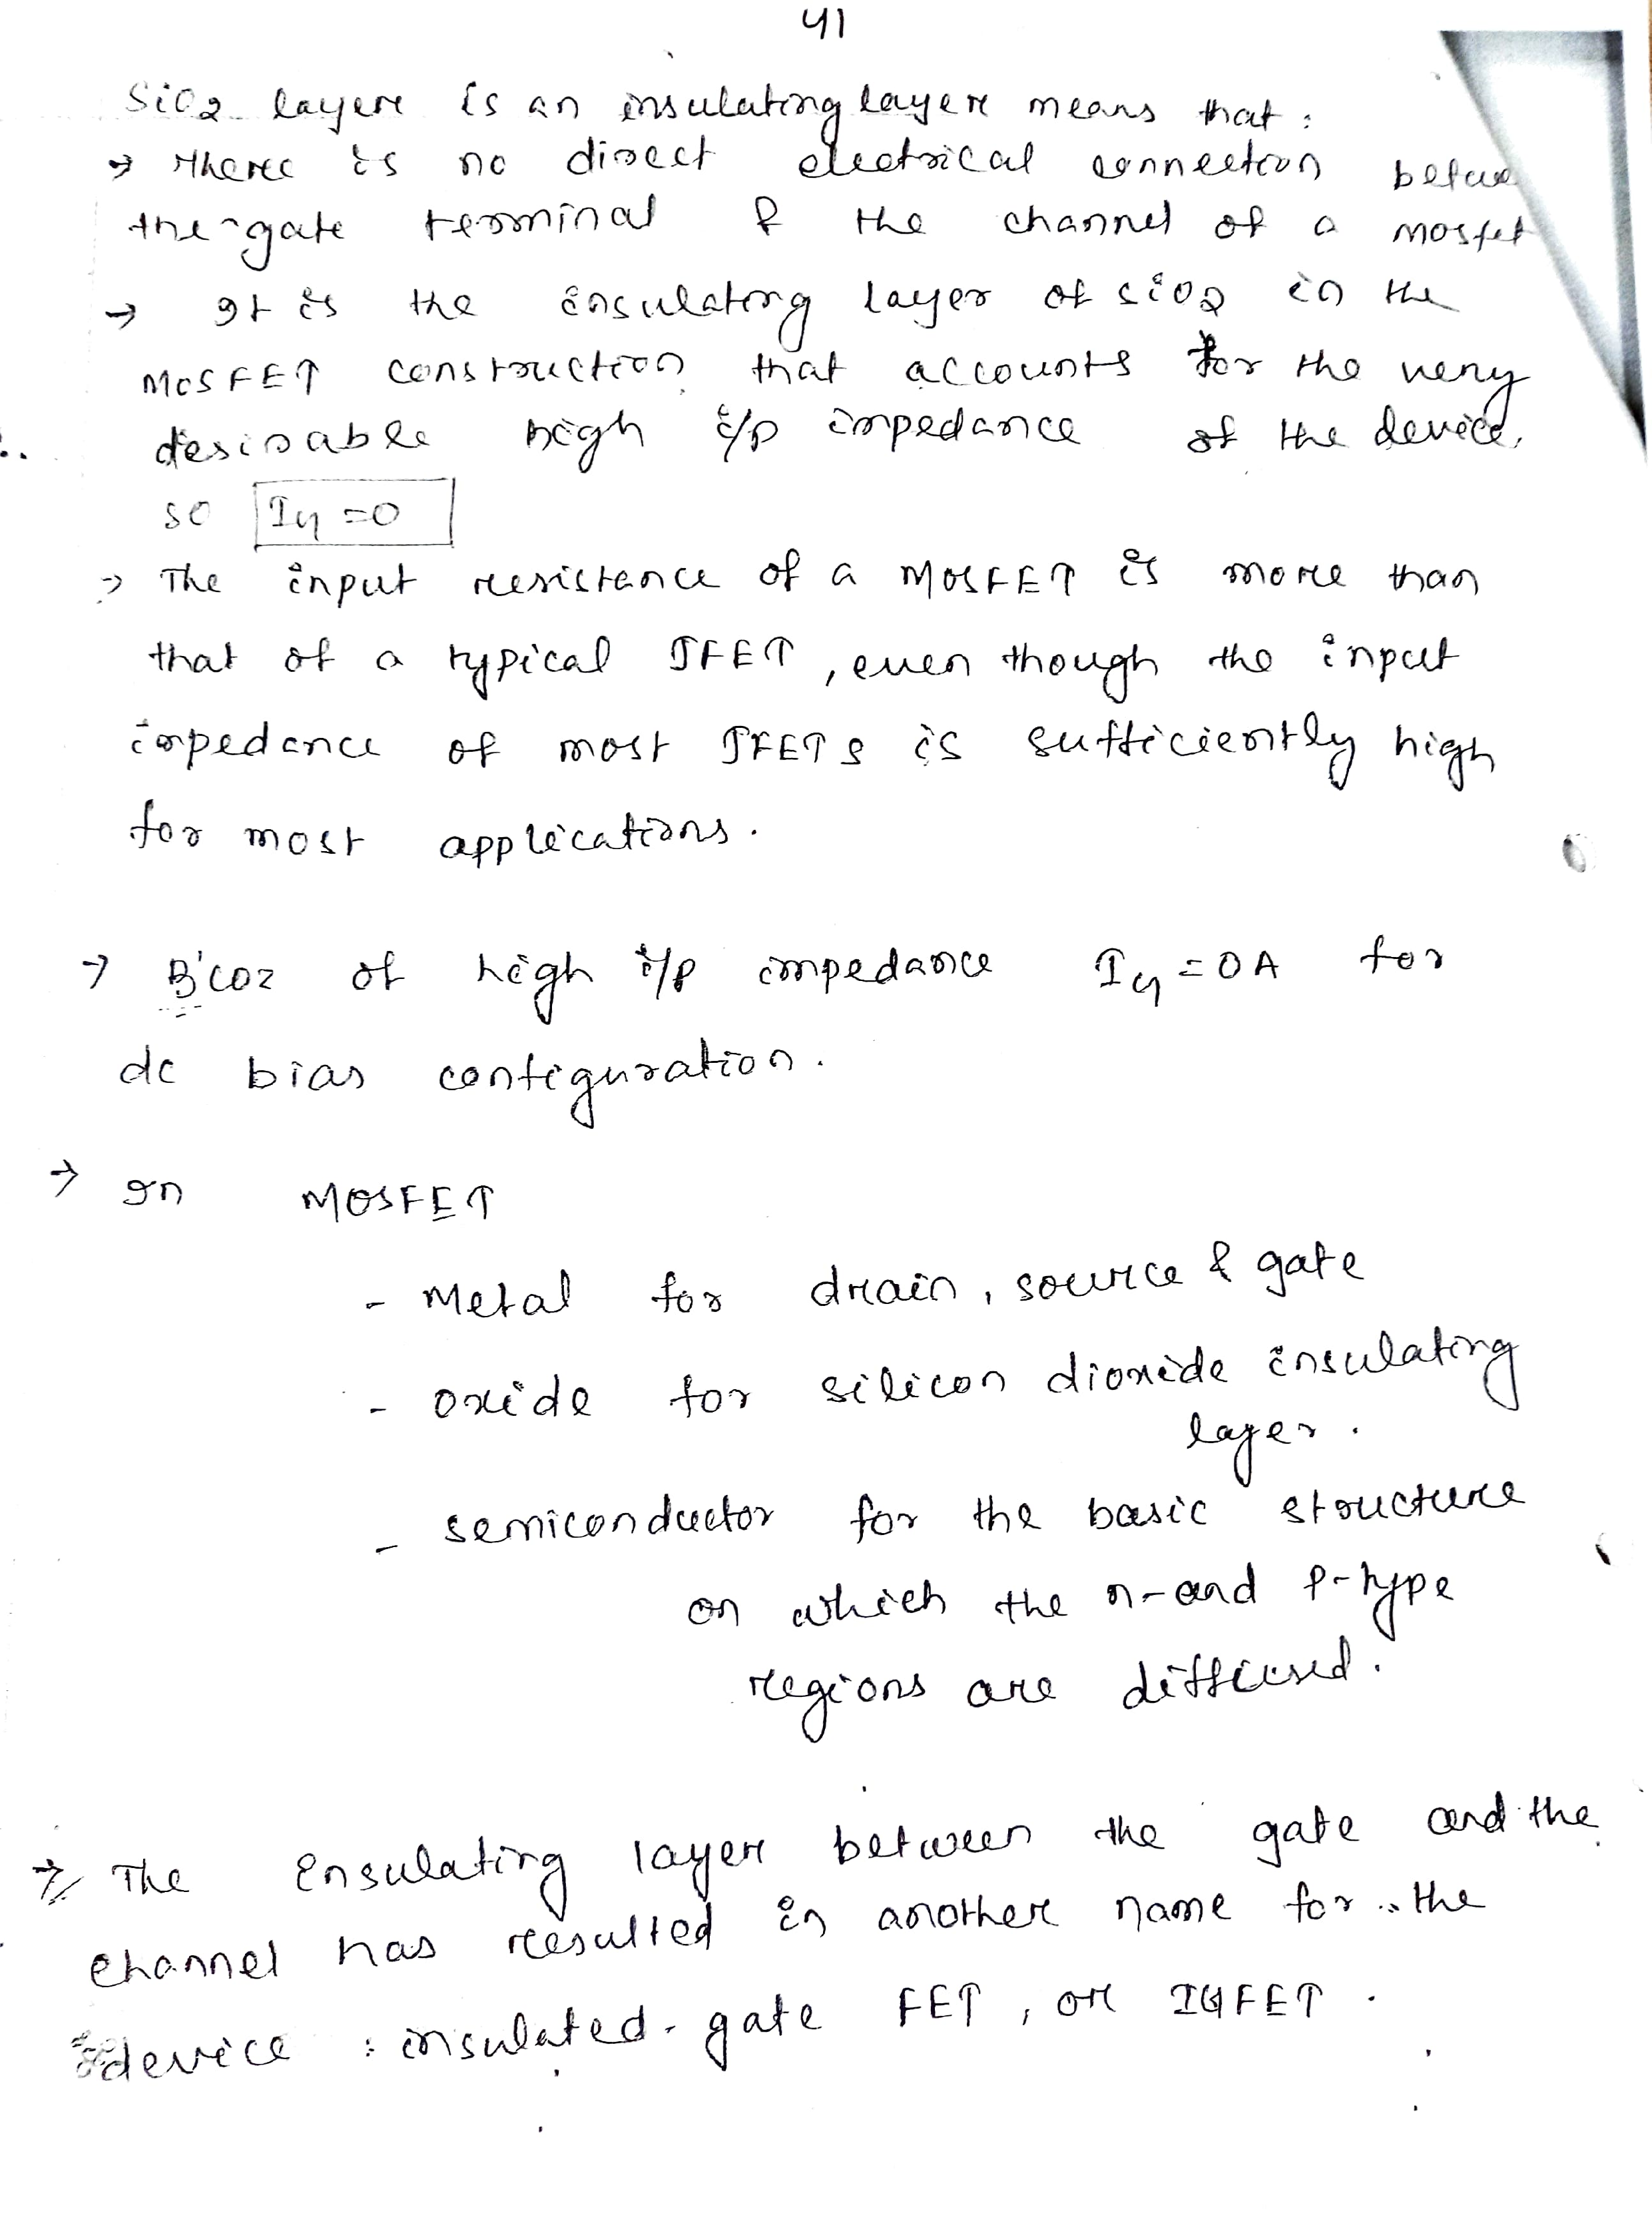 41
SiO2 layer is an insulating layer means that :
→ There is no direct electrical connection
the gate terminal & the channel of a mosfet
→ It is the insulating layer of SiO2 in the
MOSFET construction that accounts for the very
desirable high i/p impedance of the device.
so IG = 0
→ The input resistance of a MOSFET is more than
that of a typical JFET, even though the input
impedance of most JFETs is sufficiently high
for most applications.
→ B'coz of high i/p impedance IG = 0A for
dc bias configuration.
→ In MOSFET
- Metal for drain, source & gate
- oxide for silicon dioxide insulating
layer.
- semiconductor for the basic structure
on which the n- and p-type
regions are diffused.
→ The insulating layer between the gate and the
channel has resulted in another name for the
device : insulated-gate FET, or IGFET.